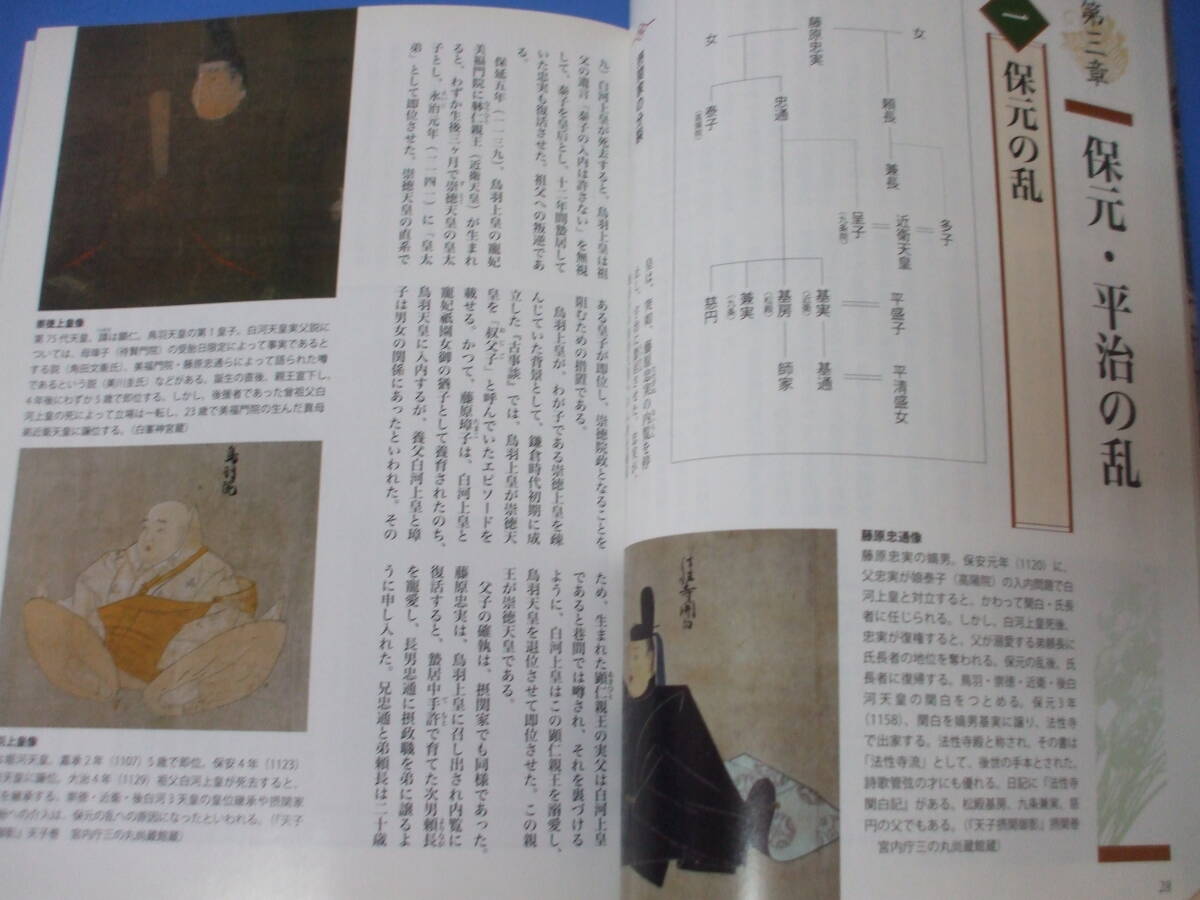 第三章
保元・平治の乱
一
保元の乱
女
藤原忠実
女
泰子
(高陽院)
忠通
頼長
兼長
多子
近衛天皇
呈子
(九条院)
慈円
兼実
(九条)
基房
(松殿)
基実
(近衛)
平盛子
師家
基通
平清盛女
藤原忠通像
藤原忠実の嫡男。保安元年(1120)に、
父忠実が娘泰子(高陽院)の入内問題で白
河上皇と対立すると、かわって関白・氏長
者に任じられる。しかし、白河上皇死後、
忠実が復権すると、父が溺愛する弟頼長に
氏長者の地位を奪われる。保元の乱後、氏
長者に復帰する。鳥羽・崇徳・近衛・後白
河天皇の関白をつとめる。保元3年
(1158)、関白を嫡男基実に譲り、法性寺
で出家する。法性寺殿と称され、その書は
「法性寺流」として、後世の手本とされた。
詩歌管弦の才にも優れる。日記に『法性寺
関白記』がある。松殿基房、九条兼実、慈
円の父でもある。(『天子摂関御影』摂関巻
宮内庁三の丸尚蔵館蔵)
法性寺関白
28
九)白河上皇が死去すると、鳥羽上皇は祖
父の遺言「泰子の入内は許さない」を無視
して、泰子を皇后とし、十二年間蟄居して
いた忠実も復活させた。祖父への叛逆であ
る。
保延五年(一一三九)、鳥羽上皇の寵妃
美福門院に躰仁親王(近衛天皇)が生まれ
ると、わずか生後三ヶ月で崇徳天皇の皇太
子とし、永治元年(一一四一)に「皇太
弟」として即位させた。崇徳天皇の直系で
ある皇子が即位し、崇徳院政となることを
阻むための措置である。
鳥羽上皇が、わが子である崇徳上皇を疎
んじていた背景として、鎌倉時代初期に成
立した『古事談』では、鳥羽上皇が崇徳天
皇を「叔父子」と呼んでいたエピソードを
載せる。かつて、藤原璋子は、白河上皇と
寵妃祇園女御の猶子として養育されたのち、
鳥羽天皇に入内するが、養父白河上皇と璋
子は男女の関係にあったといわれた。その
ため、生まれた顕仁親王の実父は白河上皇
であると巷間では噂され、それを裏づける
ように、白河上皇はこの顕仁親王を溺愛し、
鳥羽天皇を退位させて即位させた。この親
王が崇徳天皇である。
父子の確執は、摂関家でも同様であった。
藤原忠実は、鳥羽上皇に召し出され内覧に
復活すると、蟄居中手許で育てた次男頼長
を寵愛し、長男忠通に摂政職を弟に譲るよ
うに申し入れた。兄忠通と弟頼長は二十歳
崇徳上皇像
第75代天皇。諱は顕仁。鳥羽天皇の第1皇子。白河天皇実父説に
ついては、母璋子(待賢門院)の受胎日限定によって事実であると
する説(角田文衞氏)、美福門院・藤原忠通らによって語られた噂
であるという説(美川圭氏)などがある。誕生の直後、親王宣下し、
4年後にわずか5歳で即位する。しかし、後援者であった曾祖父白
河上皇の死によって立場は一転し、23歳で美福門院の生んだ異母
弟近衛天皇に譲位する。(白峯神宮蔵)
鳥羽院
羽上皇像
堀河天皇。嘉承2年(1107)5歳で即位。保安4年(1123)
天皇に譲位。大治4年(1129)祖父白河上皇が死去すると、
を継承する。崇徳・近衛・後白河3天皇の皇位継承や摂関家
への介入は、保元の乱への原因になったといわれる。(『天子
御影』天子巻 宮内庁三の丸尚蔵館蔵)